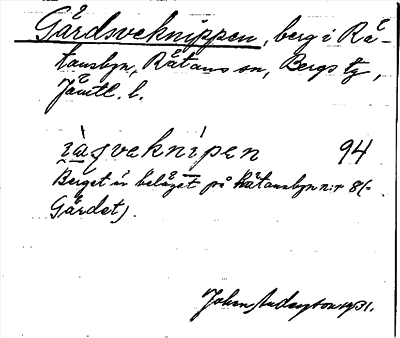 Gårdsveknippen, berg i Rä-
tansbyn, Rätans sn, Bergs tg,
Jämtl. l.
i̯àsveknípen 94
Berget är beläget på Rätansbyn n:r 8 (=
Gårdet).
Johan Anderson 1931.